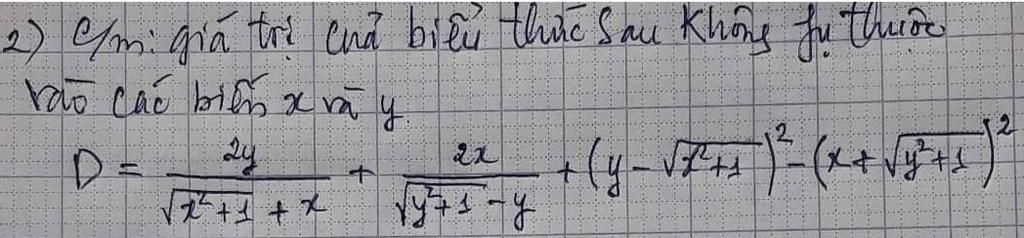 2) C/m: giá trị của biểu thức sau không fụ thuộc
vào các biến x và y.
D = \frac{2y}{\sqrt{x^2+1}+x} + \frac{2x}{\sqrt{y^2+1}-y} + (y-\sqrt{x^2+1})^2-(x+\sqrt{y^2+1})^2